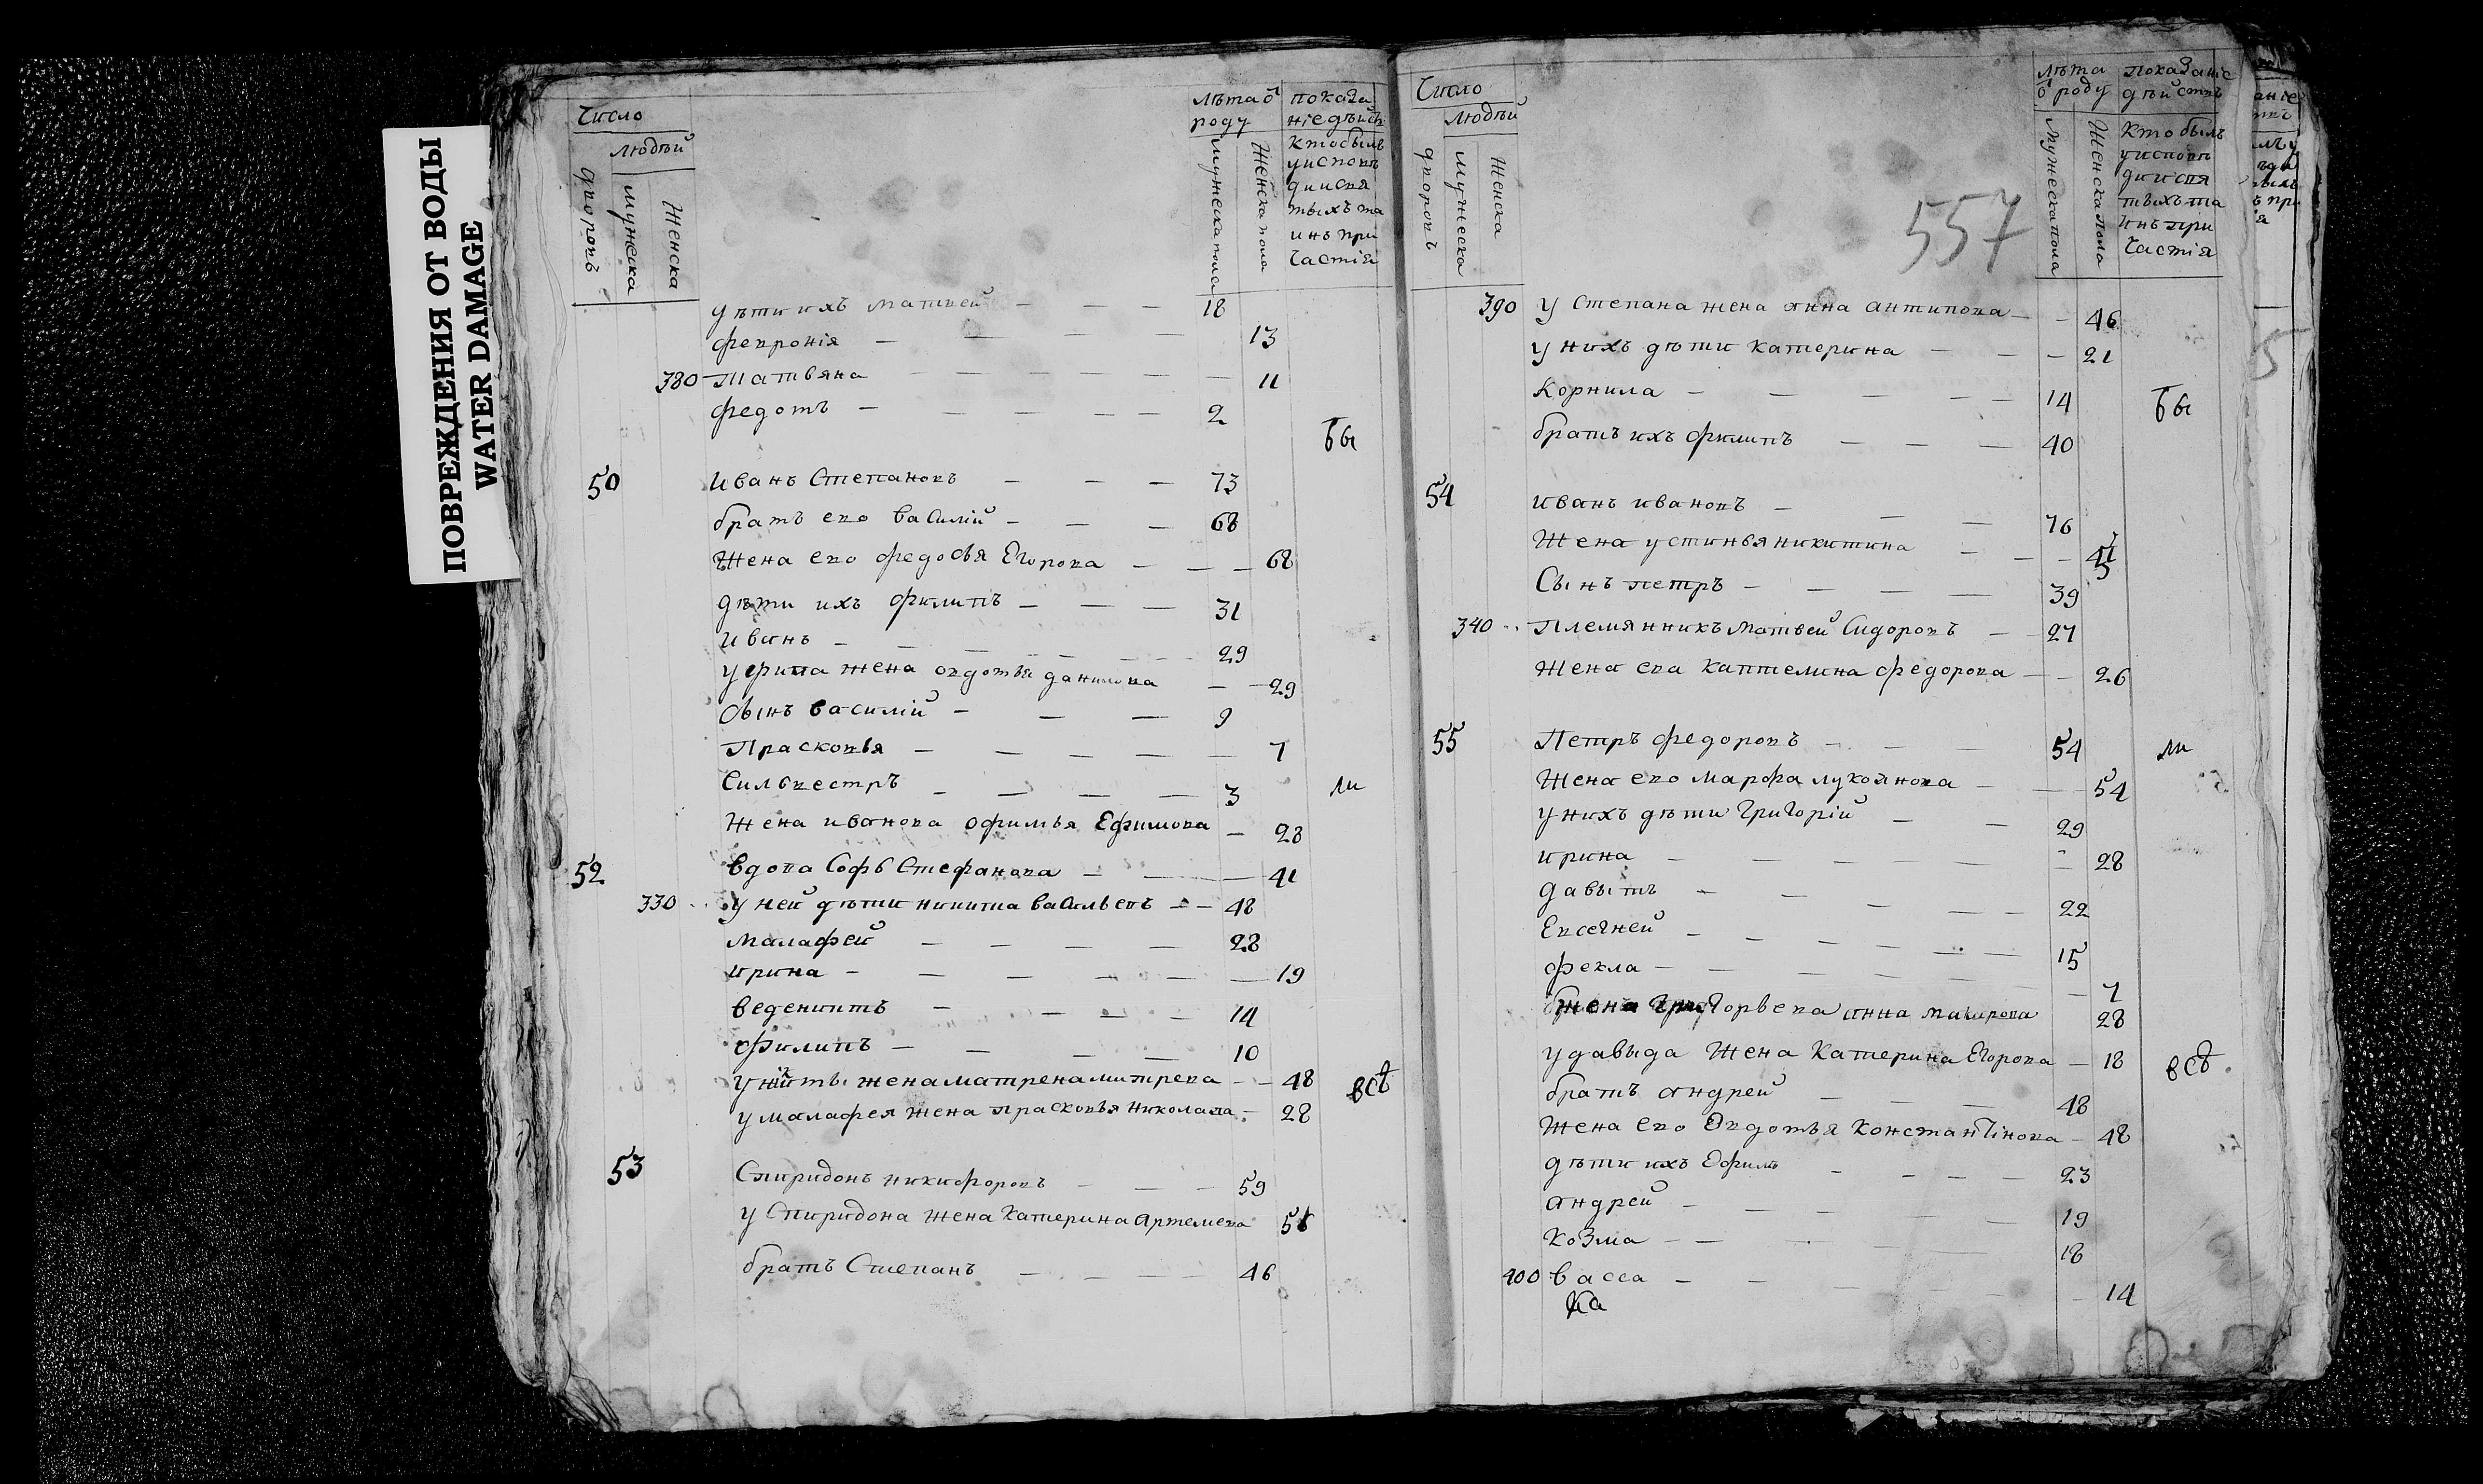 ПОВРЕЖДЕНИЯ ОТ ВОДЫ
WATER DAMAGE
Число
людѣй
дворовъ
мужеска
Женска
лѣта ѿ роду
мужеска пола
Женска пола
показаніе дѣйств
кто былъ
у испов
ди и свя
тыхъ та
инъ при
частія
дѣти ихъ матвей — — — 18
февронія — — — — 13
380 Татьяна — — — — — 11
федотъ — — — — — 2
бы
50 иванъ Степановъ — — — 73
братъ ево василій — — — 68
Жена ево федосья Егорова — — — 68
дѣти ихъ филипъ — — — 31
иванъ — — — — — 29
у фипа жена овдотья данилова — — 29
сынъ василій — — — 9
Прасковья — — — — — 7
Сильвестръ — — — — 3
ли
Жена иванова офимья Ефимова — 28
52 вдова Софь Стефанова — — — 41
330 у ней дѣти никита васильевъ — — 48
малафей — — — — 28
ирина — — — — — — 19
веденихтъ — — — — 14
филипъ — — — — 10
у никиты жена матрена митрева — — 48
всѣ
у малафея жена прасковья николава — 28
53 Спиридонъ никифоровъ — — — 59
у Спиридона жена Катерина Артемева 58
братъ Степанъ — — — — 46
Число
людѣй
дворовъ
мужеска
Женска
557
лѣта ѿ роду
мужеска пола
Женска пола
показаніе дѣйствъ
Кто былъ
у испов
ди и свя
тыхъ та
инъ при
частія
390 у Степана жена анна антипова — — 46
у нихъ дѣти катерина — — — 21
корнила — — — — — 14
бы
братъ ихъ филипъ — — — 40
54 иванъ ивановъ — — — 76
Жена устинья никитина — — —
Сынъ петръ — — — — 39
340 Племянникъ матвей Сидоровъ — — 27
Жена ева каптелина федорова — — 26
55 Петръ федоровъ — — — 54
ли
Жена ево марфа лукоянова — — 54
у нихъ дѣти Григорій — — 29
ирина — — — — — — 28
давытъ — — — — — 22
Евсегней — — — — — — 15
фекла — — — — — — 7
жена Григорьева анна макирова 28
у давыда Жена Катерина Егорова — 18
всѣ
братъ андрей — — — 48
Жена ево Овдотья константінова — 48
дѣти ихъ Ефимъ — — — — 23
андрей — — — — — 19
козма — — — — — 18
400 васса — — — — 14
Ка